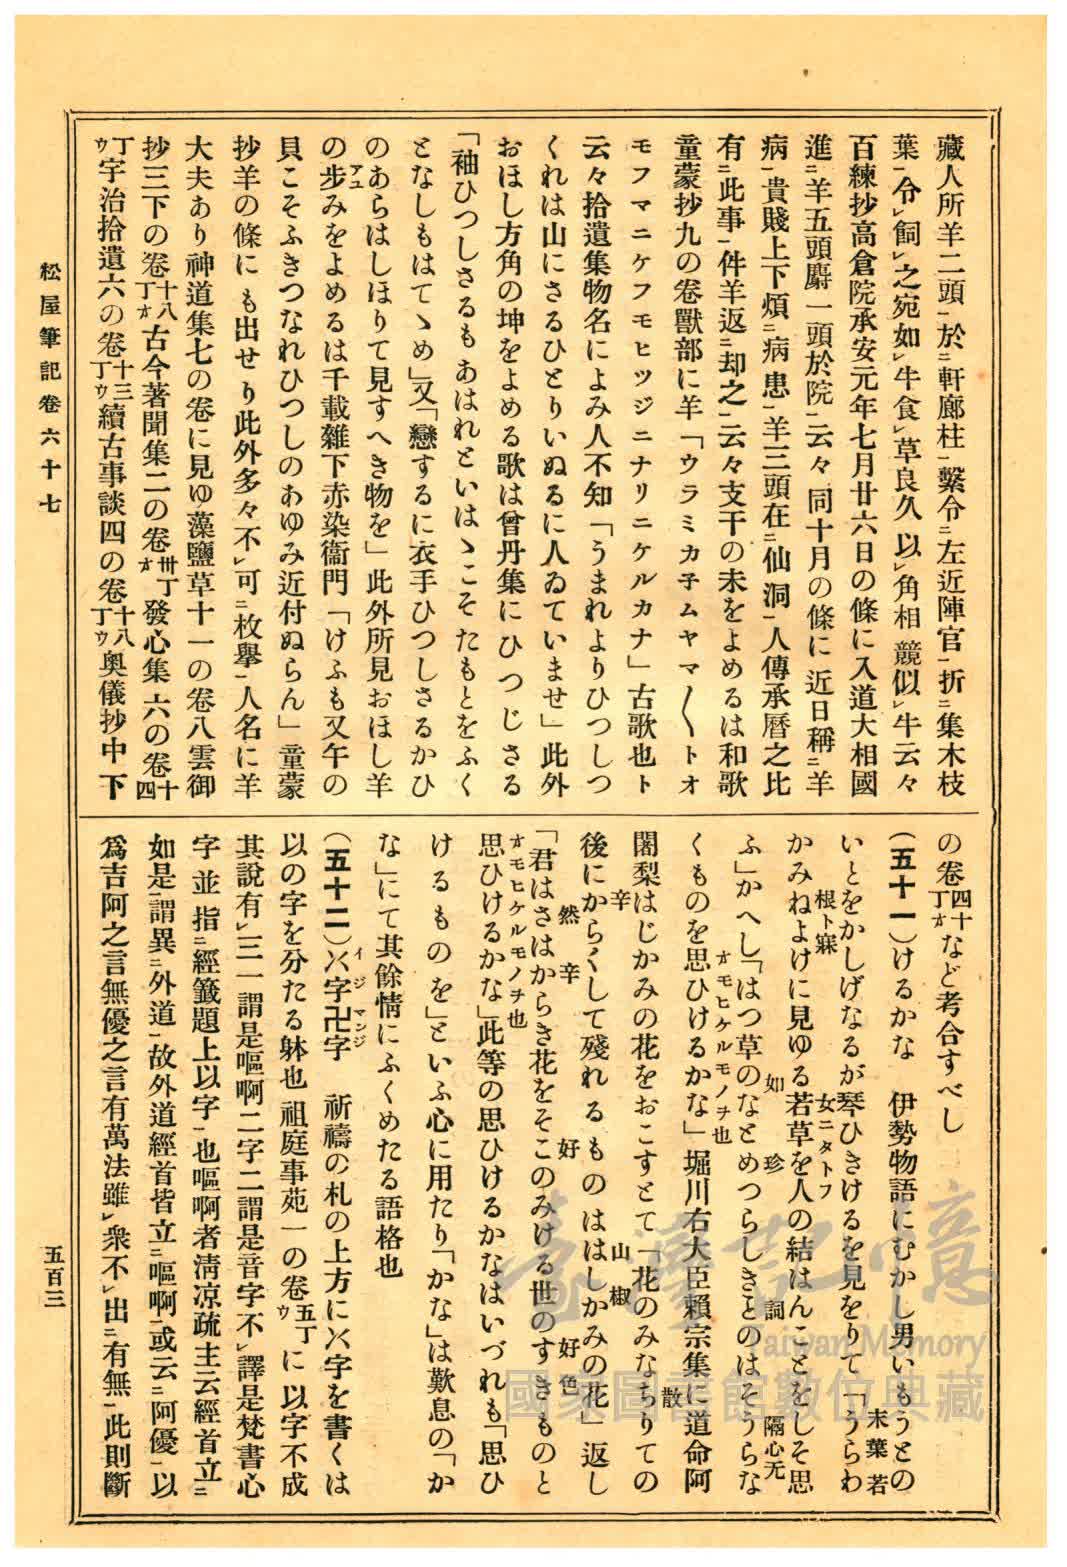 藏人所羊二頭一於ニ軒廊柱一繫令ニ左近陣官一折ニ集木枝
葉一令レ飼レ之宛如レ牛食レ草良久以レ角相競似レ牛云々
百練抄高倉院承安元年七月廿六日の條に入道大相國
進ニ羊五頭麝一頭於院一云々同十月の條に近日稱ニ羊
病一貴賤上下煩ニ病患一羊三頭在ニ仙洞一人傳承曆之比
有ニ此事一件羊返ニ却之一云々支干の未をよめるは和歌
童蒙抄九の卷獸部に羊「ウラミカ子ムヤマ〳〵トオ
モフマニケフモヒツジニナリニケルカナ」古歌也ト
云々拾遺集物名によみ人不知「うまれよりひつしつ
くれは山にさるひとりいぬるに人ゐていませ」此外
おほし方角の坤をよめる歌は曾丹集にひつじさる
「袖ひつしさるもあはれといはゝこそたもとをふく
となしもはてゝめ」又「戀するに衣手ひつしさるかひ
のあらはしほりて見すへき物を」此外所見おほし羊
の步アユみをよめるは千載雜下赤染衞門「けふも又午の
貝こそふきつなれひつしのあゆみ近付ぬらん」童蒙
抄羊の條にも出せり此外多々不レ可ニ枚擧一人名に羊
大夫あり神道集七の卷に見ゆ藻鹽草十一の卷八雲御
抄三下の卷十八丁オ古今著聞集二の卷卅丁オ發心集六の卷十四
丁ウ宇治拾遺六の卷十三丁ウ續古事談四の卷十八丁ウ奧儀抄中下
の卷四十丁オなど考合すべし
(五十一)けるかな　伊勢物語にむかし男いもうとの
いとをかしげなるが琴ひきけるを見をりて「うらわ
末葉若
かみねよけに見ゆる若草を人の結はんことをしそ思
根ト寐　女ニタトフ
ふ」かへし「はつ草のなとめつらしきことのはそうらな
如　珍　詞　隔心无
くものを思ひけるかな」堀川右大臣賴宗集に道命阿
オモヒケルモノヲ也
闍梨はじかみの花をおこすとて「花のみなちりての
散
後にからくして殘れるものははしかみの花」返し
辛　山椒
「君はさはからき花をそこのみける世のすきものと
然　辛　好　好色
思ひけるかな」此等の思ひけるかなはいづれも「思ひ
オモヒケルモノヲ也
けるものを」といふ心に用たり「かな」は歎息の「か
な」にて其餘情にふくめたる語格也
(五十二)㐅イ字ジ卍マン字ジ　祈禱の札の上方に㐅字を書くは
以の字を分たる躰也祖庭事苑一の卷五丁ウに以字不成
其說有レ三一謂是嘔啊二字二謂是音字不レ譯是梵書心
字並指ニ經籤題上以字一也嘔啊者淸凉疏主云經首立ニ
如是一謂異ニ外道一故外道經首皆立ニ嘔啊一或云ニ阿優一以
爲吉阿之言無優之言有萬法雖レ衆不レ出ニ有無一此則斷
松屋筆記卷六十七
五百三
臺灣記憶
Taiwan Memory
國家圖書館數位典藏